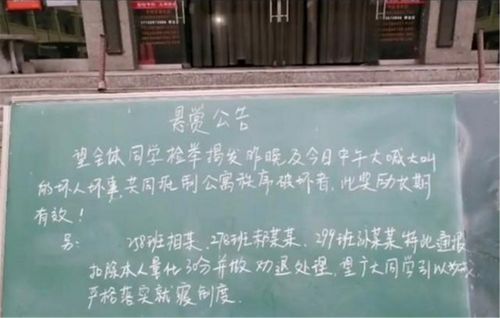 悬赏公告
望全体同学检举揭发昨晚及今日中午大喊大叫
的坏人坏事,共同批制公寓秩序破坏者,此奖励长期
有效!
另: 258班相某、278班郝某某、299班孙某某特此通报
扣除本人量化30分并做劝退处理,望广大同学引以为戒
严格落实就寝制度.